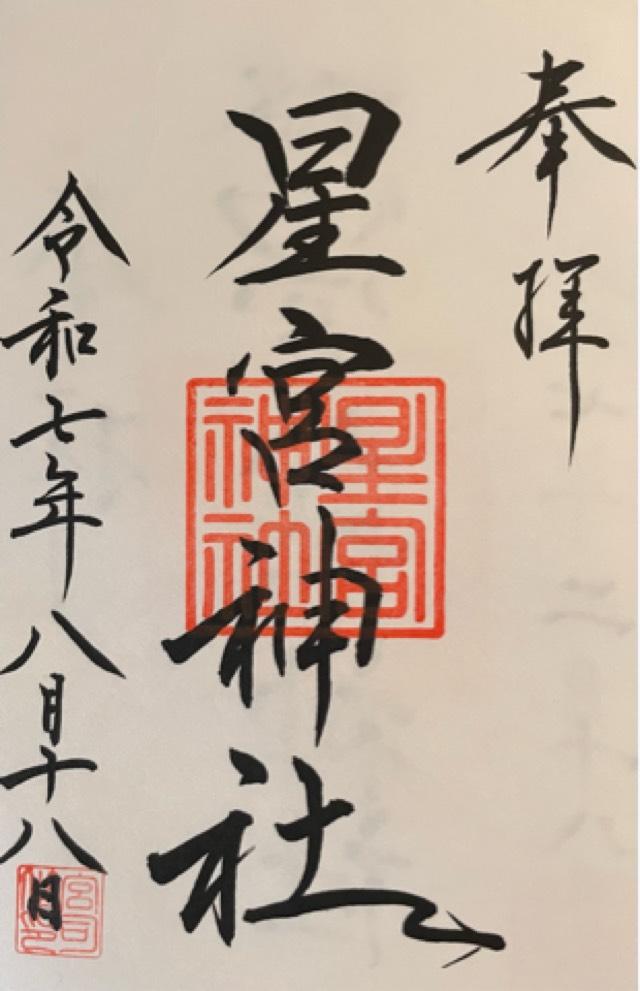 奉拝
星宮神社
星宮
神社
令和七年八月十八日
宮司